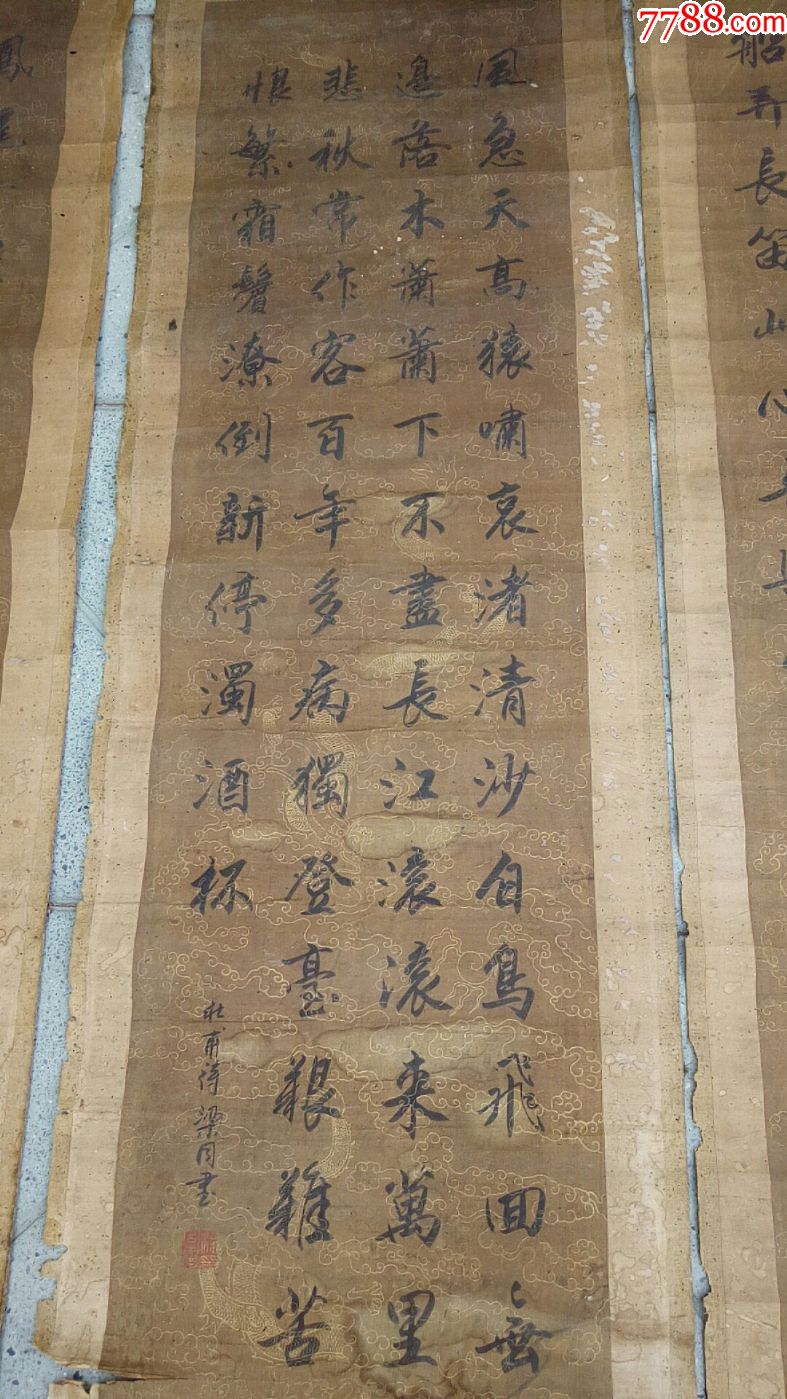 7788.com
收藏
船弄長笛此心
風急天高猿嘯哀渚清沙白鳥飛回無
邊落木蕭蕭下不盡長江滾滾来萬里
悲秋常作客百年多病獨登臺艱難苦
恨繁霜鬢潦倒新停濁酒杯
杜甫詩 梁同書
鳳